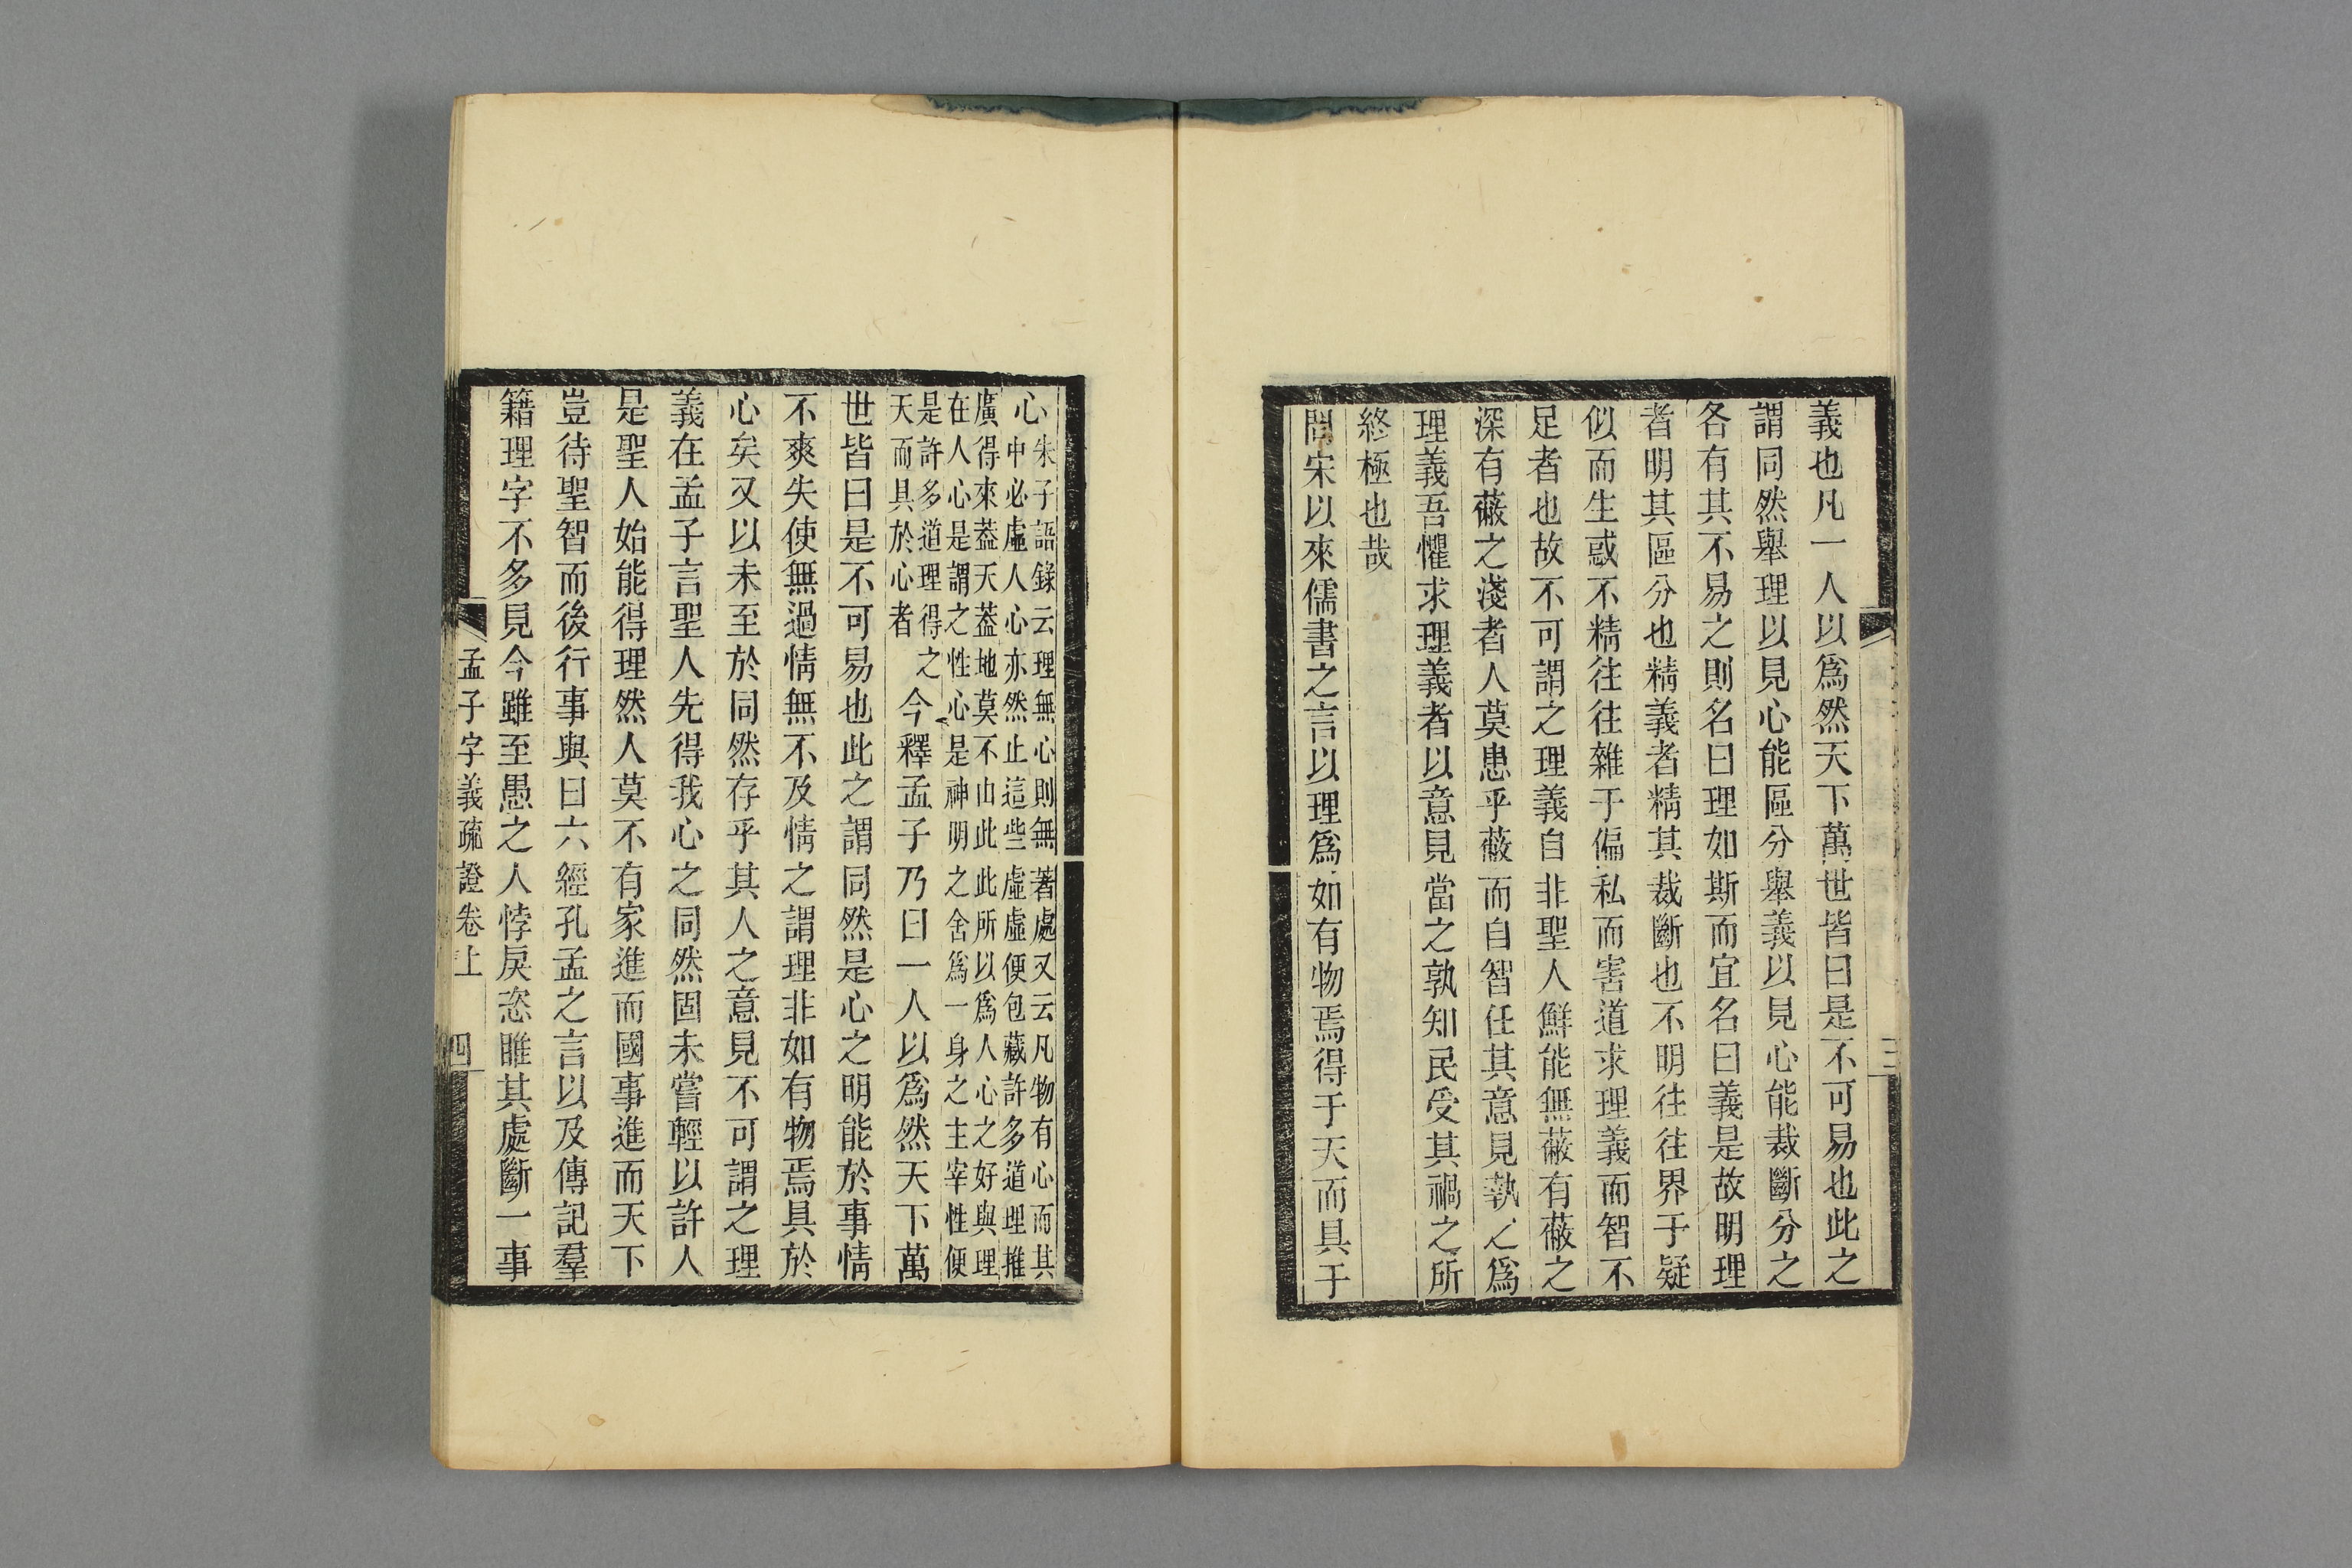 義也凡一人以爲然天下萬世皆曰是不可易也此之
謂同然舉理以見心能區分舉義以見心能裁斷分之
各有其不易之則名曰理如斯而宜名曰義是故明理
者明其區分也精義者精其裁斷也不明往往界于疑
似而生惑不精往往雜于偏私而害道求理義而智不
足者也故不可謂之理義自非聖人鮮能無蔽有蔽之
深有蔽之淺者人莫患乎蔽而自智任其意見執之爲
理義吾懼求理義者以意見當之孰知民受其禍之所
終極也哉
問宋以來儒書之言以理爲如有物焉得于天而具于
三
心朱子語錄云理無心則無著處又云凡物有心而其
中必虛人心亦然止這些虛處便包藏許多道理推
廣得來葢天葢地莫不由此此所以爲人心之好與理
在人心是謂之性心是神明之舍爲一身之主宰性便
是許多道理得之
天而具於心者
今釋孟子乃曰一人以爲然天下萬
世皆曰是不可易也此之謂同然是心之明能於事情
不爽失使無過情無不及情之謂理非如有物焉具於
心矣又以未至於同然存乎其人之意見不可謂之理
義在孟子言聖人先得我心之同然固未嘗輕以許人
是聖人始能得理然人莫不有家進而國事進而天下
豈待聖智而後行事與曰六經孔孟之言以及傳記羣
籍理字不多見今雖至愚之人悖戾恣睢其處斷一事
孟子字義疏證卷上
四